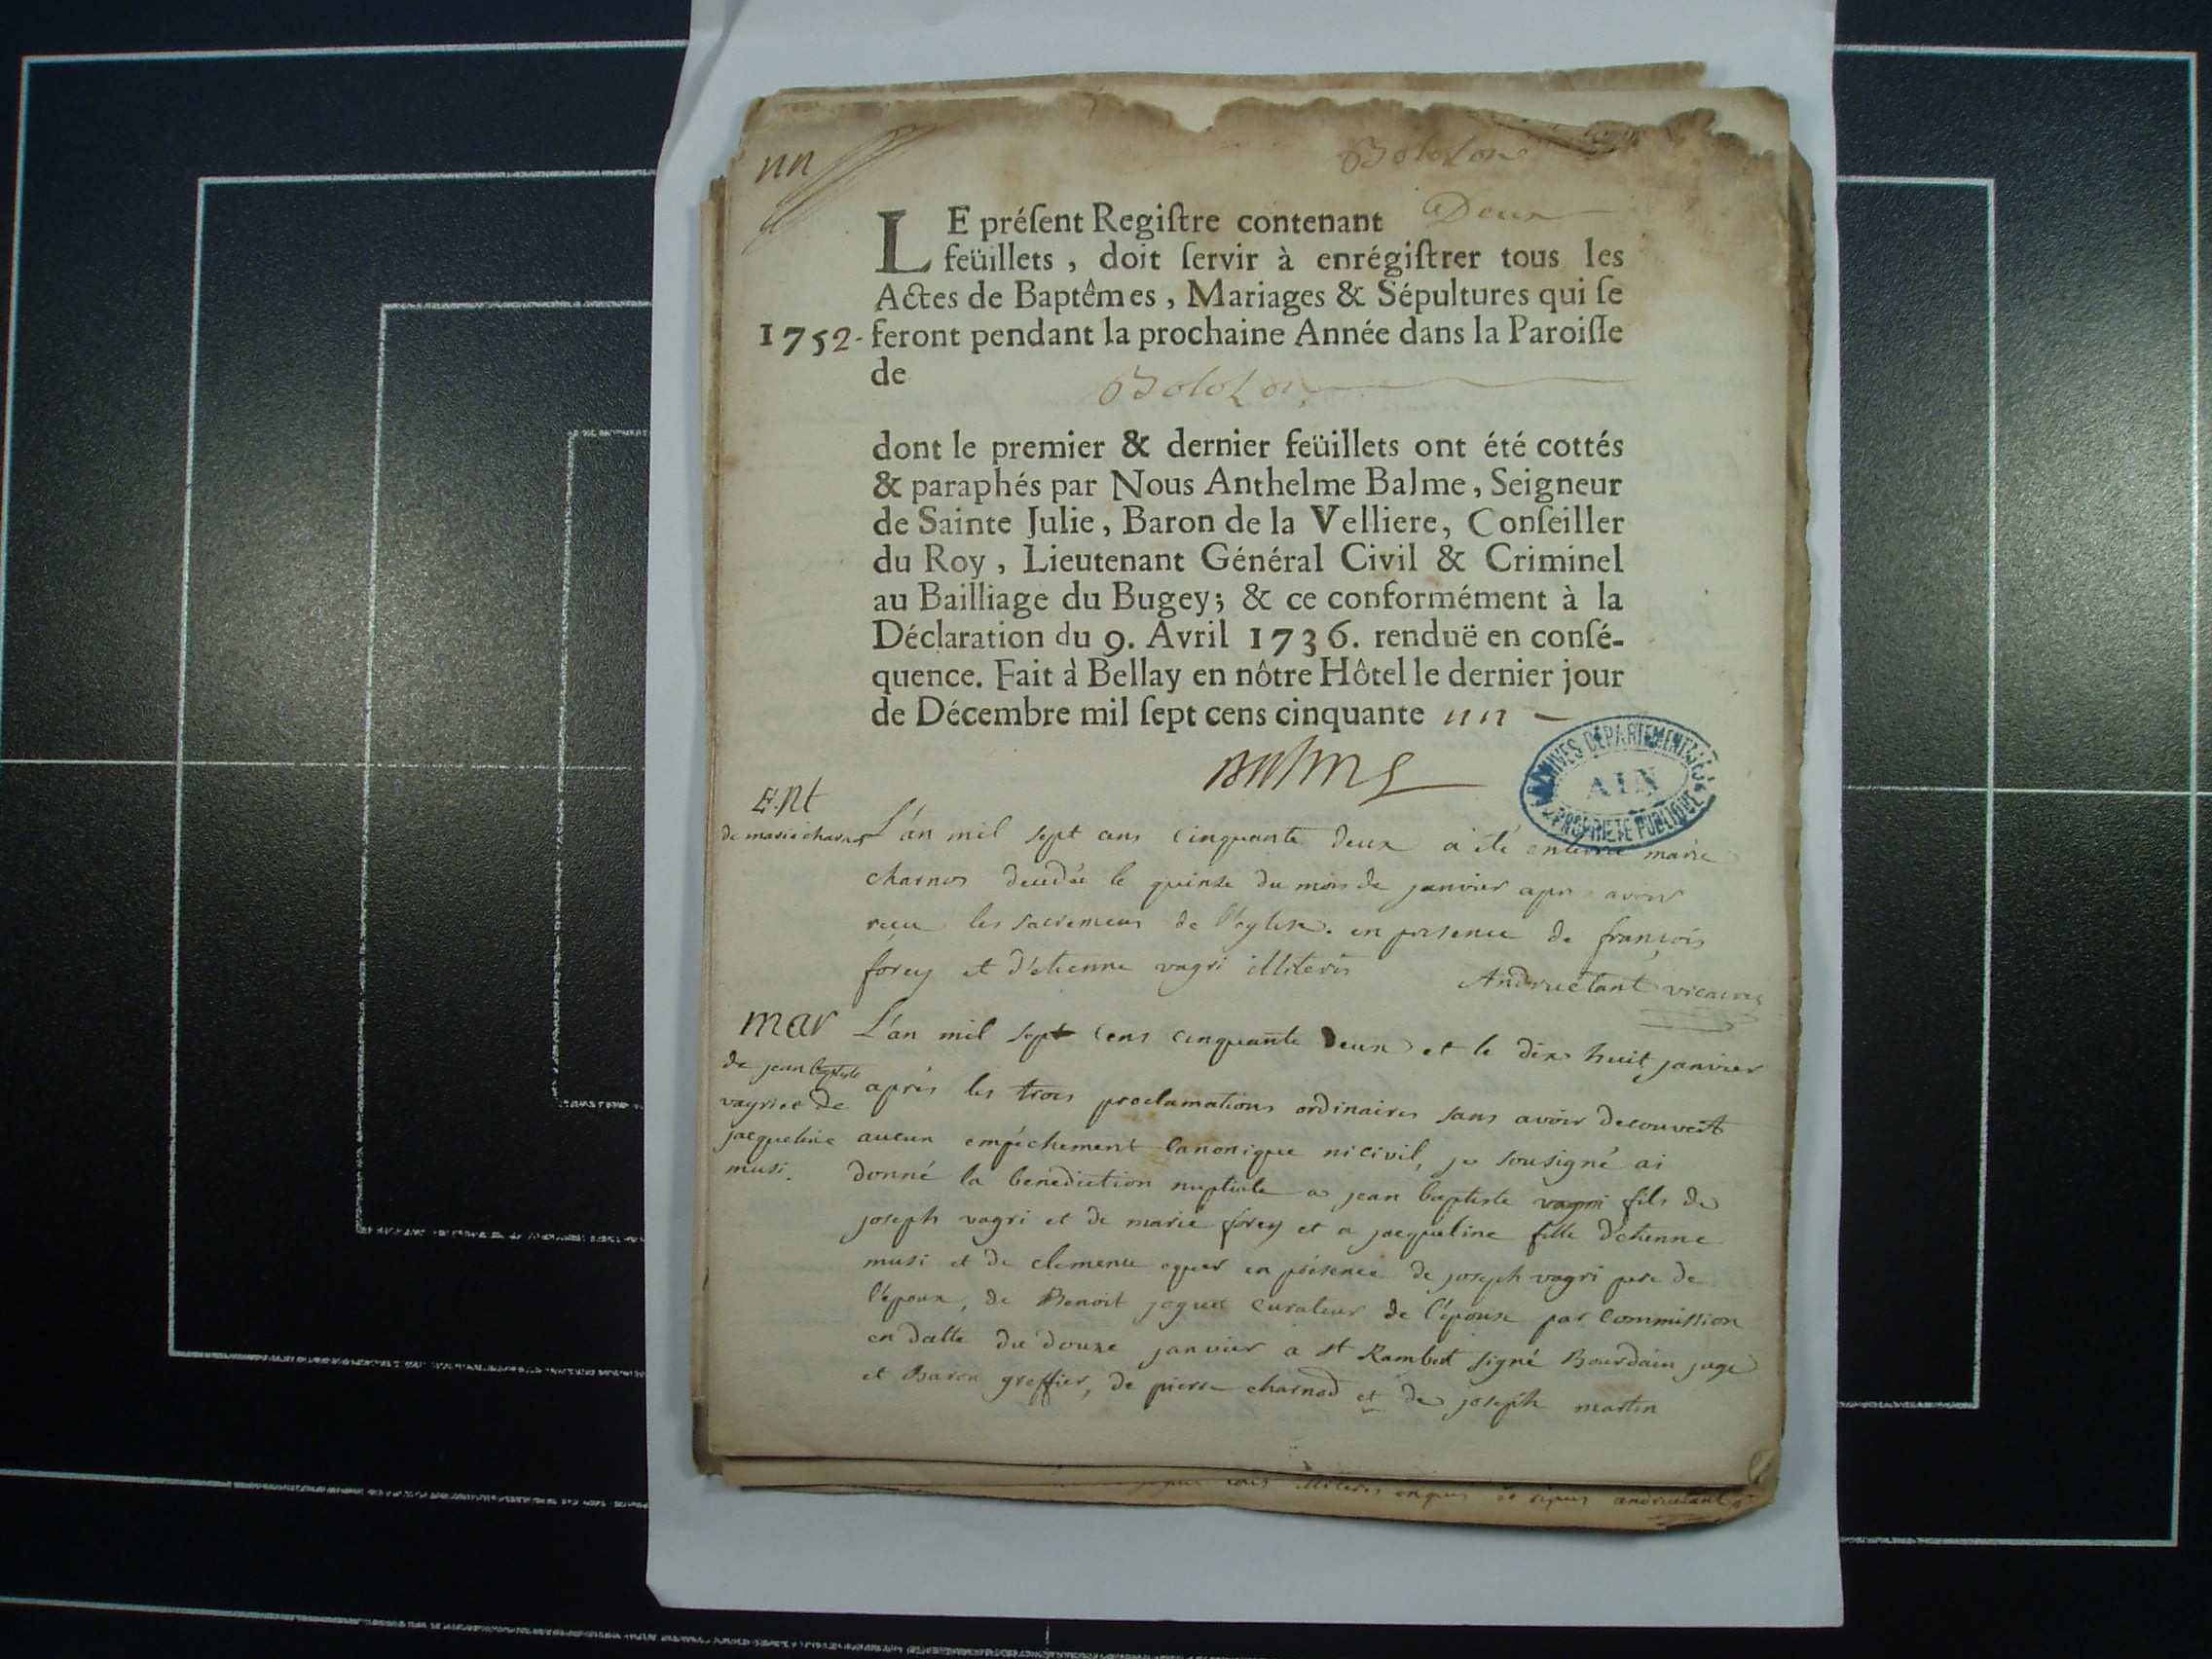 un
Bolozon
LE préſent Regiſtre contenant Deux
feüillets, doit ſervir à enrégiſtrer tous les
Actes de Baptêmes, Mariages & Sépultures qui ſe
1752- feront pendant la prochaine Année dans la Paroiſſe
de
Bolozon
dont le premier & dernier feüillets ont été cottés
& paraphés par Nous Anthelme Balme, Seigneur
de Sainte Julie, Baron de la Velliere, Conſeiller
du Roy, Lieutenant Général Civil & Criminel
au Bailliage du Bugey; & ce conformément à la
Déclaration du 9. Avril 1736. renduë en conſé-
quence. Fait à Bellay en nôtre Hôtel le dernier jour
de Décembre mil ſept cens cinquante un
Balme
ARCHIVES DÉPARTEMENTALES
AIN
PROPRIÉTÉ PUBLIQUE
E.nt
de marie charnos
L'an mil sept cens cinquante deux a été enterré marie
charnos decedée le quinze du mois de janvier apres avoir
reçu les sacremens de l'eglise. en presence de françois
forey et d'etienne vagri illiterés
Andruetant vicaire
mar
de jean baptiste
vagri et de
jacqueline
musi.
L'an mil sept cens cinquante deux et le dix huit janvier
après les trois proclamations ordinaires sans avoir decouvert
aucun empéchement canonique ni civil, je sousigné ai
donné la benediction nuptiale a jean baptiste vagri fils de
joseph vagri et de marie forey et a jacqueline fille d'etienne
musi et de clemence en présence de joseph vagri pere de
l'époux, de Benoit joguet curateur de l'épouse par commission
en datte du douze janvier a st Rambert signé Bourdain juge
et Baron greffier, de pierre charnod et de joseph martin
illiterés enquis de signer andruetant